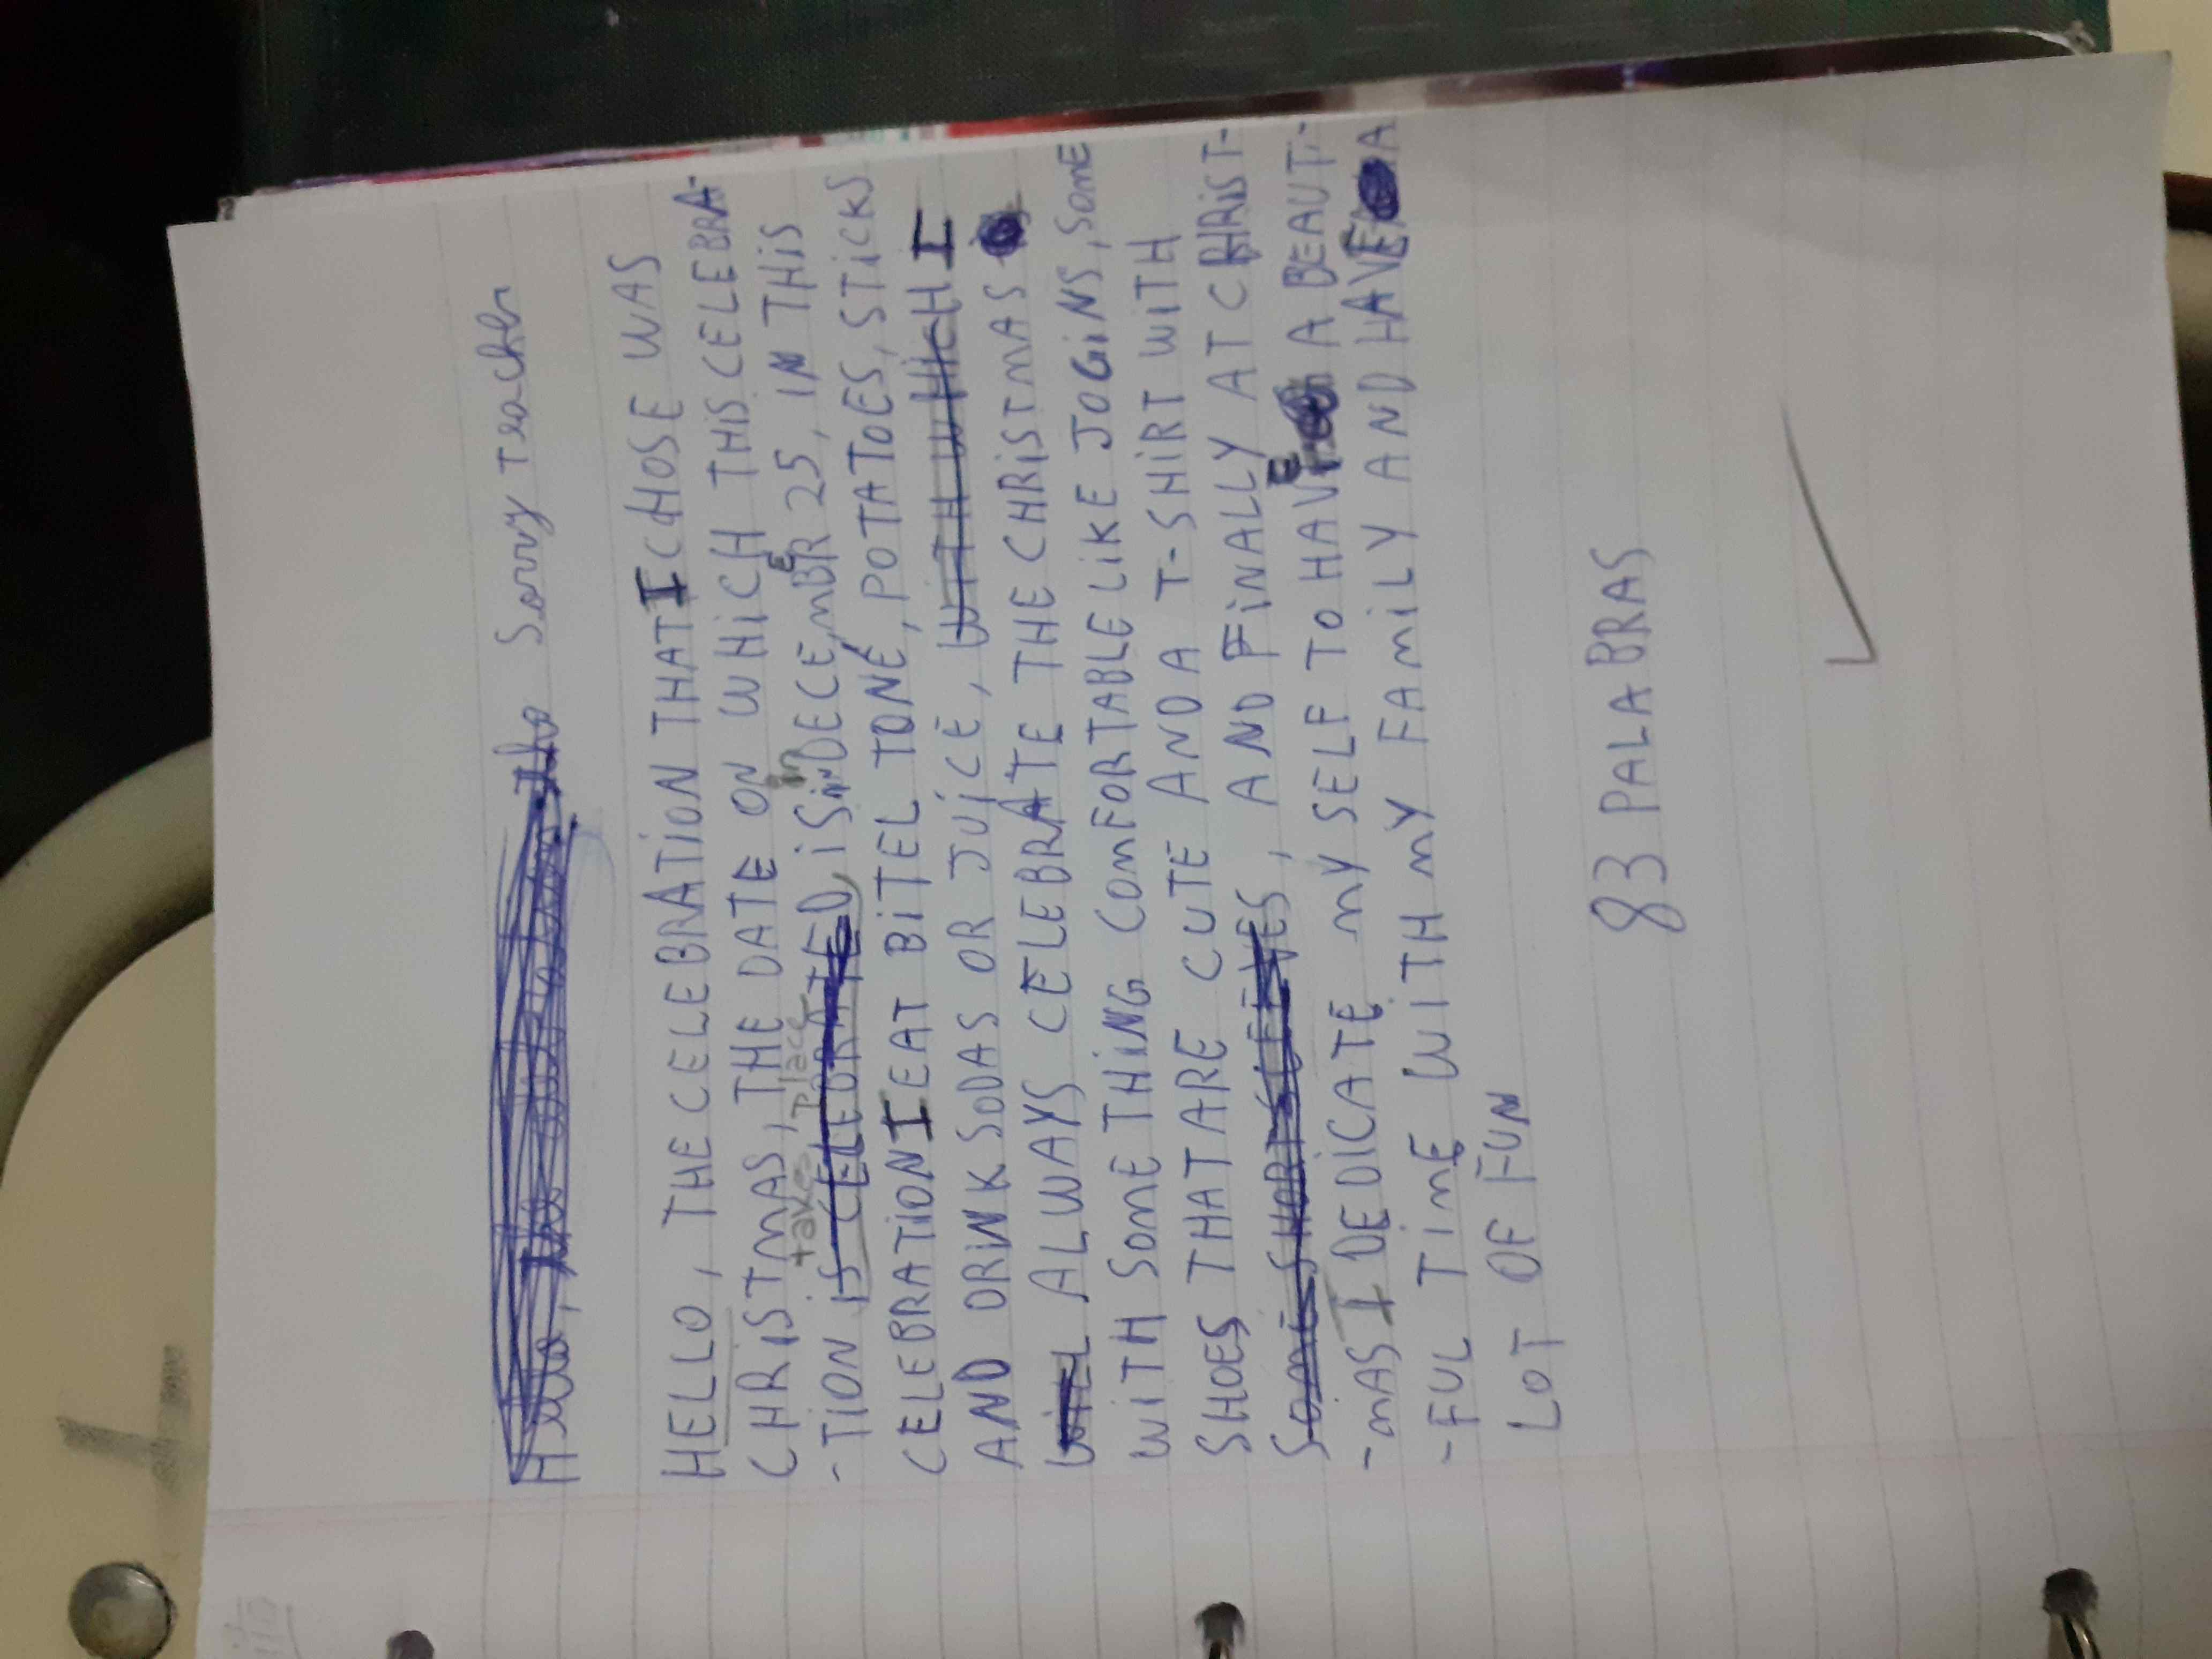 Sorry Teacher
HELLO, THE CELEBRATION THAT I CHOSE WAS
CHRISTMAS, THE DATE ON WHICH THIS CELEBRA-
takes place in
-TION is CELEBRATED, iS in DECEMBER 25, IN THIS
CELEBRATION I EAT BITEL TONÉ, POTATOES, STICKS
AND DRINK SODAS OR JUICE, WITH WHICH I
ALWAYS CELEBRATE THE CHRISTMAS
WITH SOME THING COMFORTABLE LIKE JOGINS, SOME
SHOES THAT ARE CUTE AND A T-SHIRT WITH
SOME SHORT SLEEVES, AND FINALLY AT CHRIST-
-MAS I DEDICATE MY SELF TO HAVE A BEAUTI-
-FUL TIME WITH MY FAMILY AND HAVE A
LOT OF FUN
83 PALABRAS